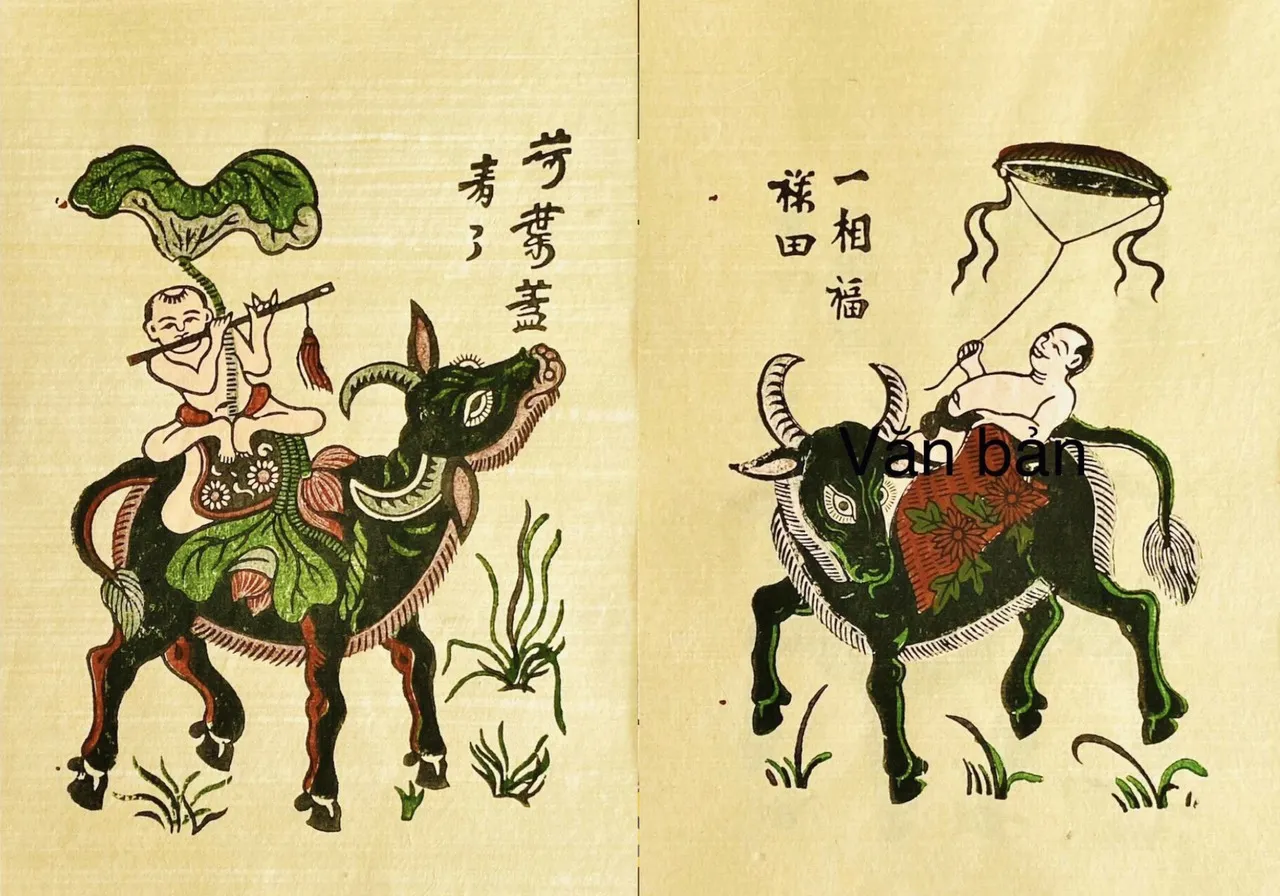 荷葉蓋
青了
一相福
祿田
Văn bản